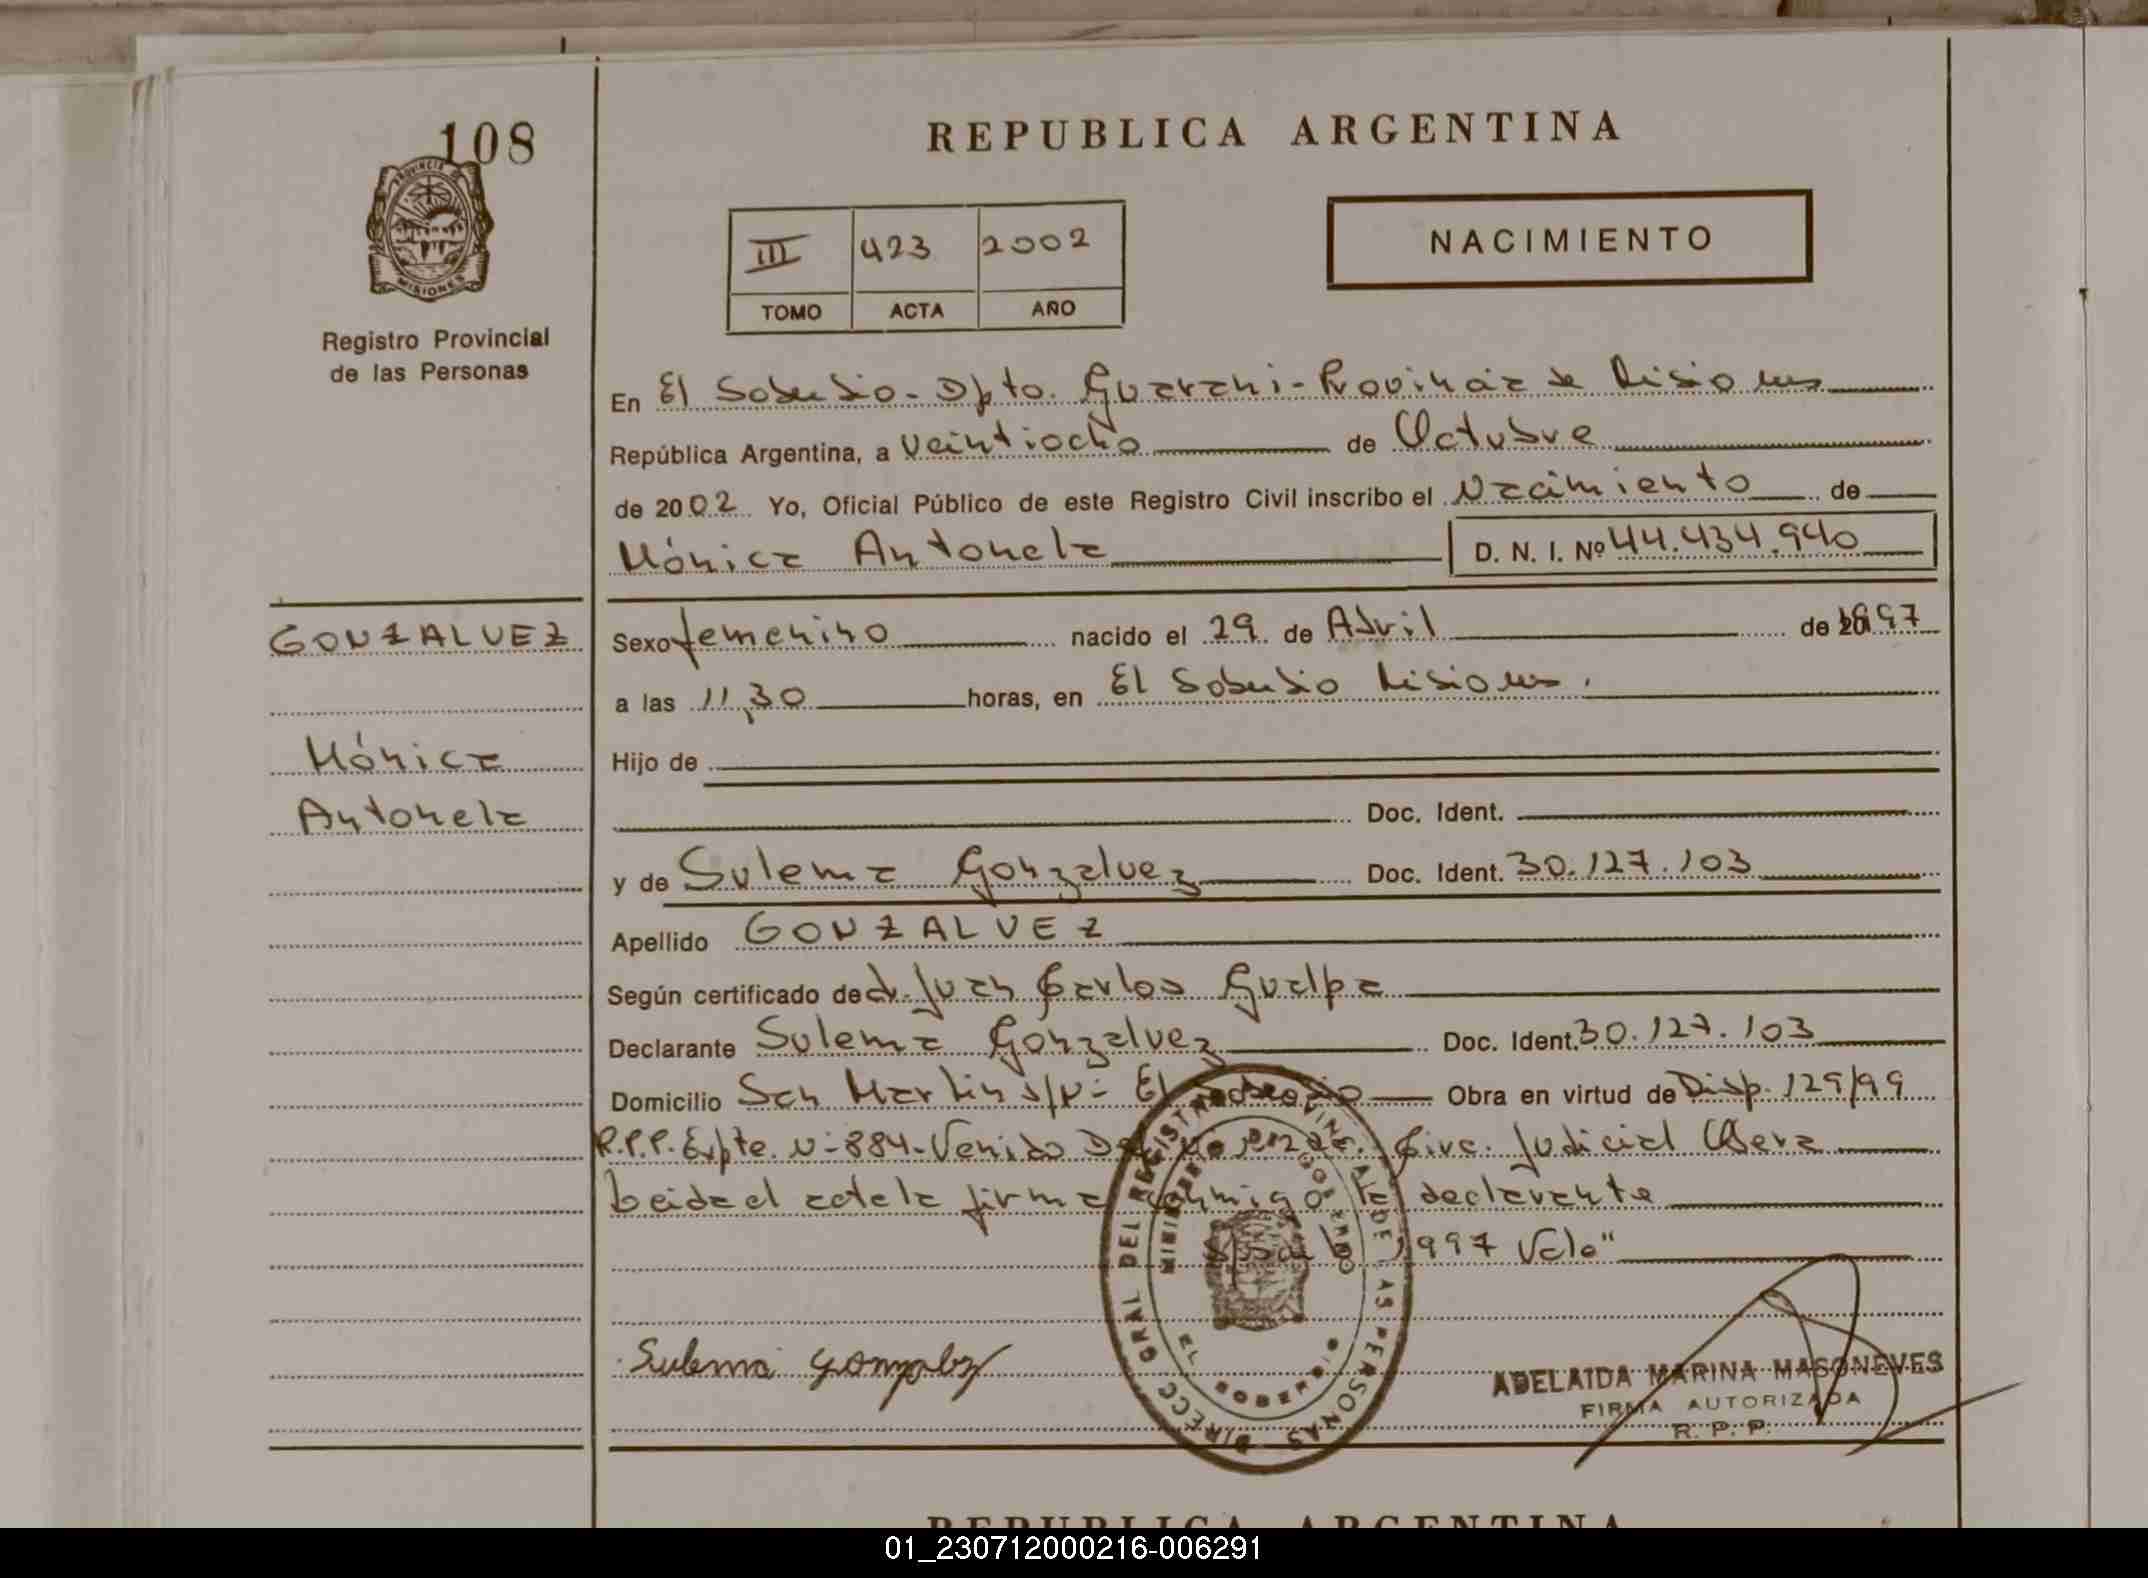 108
PROVINCIA DE
MISIONES
Registro Provincial
de las Personas
REPUBLICA ARGENTINA
III 423 2002
TOMO ACTA AÑO
NACIMIENTO
En El Soberbio - Dpto. Guarani - Provincia de Misiones
República Argentina, a veintiocho de Octubre
de 2002 Yo, Oficial Público de este Registro Civil inscribo el Nacimiento de
Mónica Antonela D. N. I. Nº 44.434.940
GONZALVEZ
Mónica
Antonela
Sexo femenino nacido el 29 de Abril de 1997
a las 11,30 horas, en El Soberbio Misiones.
Hijo de
Doc. Ident.
y de Sulema Gonzalvez Doc. Ident. 30.127.103
Apellido GONZALVEZ
Según certificado de dr. Juan Carlos Gualpa
Declarante Sulema Gonzalvez Doc. Ident. 30.127.103
Domicilio San Martin s/Nº El Soberbio Obra en virtud de Disp. 129/99
R.P.P. Expte. Nº 884 - Venido Del Circ. Judicial Obera
Leida el acta la firma conmigo la declarante
1997 Vale"
Sulema Gonzalez
DIRECC GRAL DEL REGISTRO PROVINCIAL DE LAS PERSONAS
EL SOBERBIO
ADELAIDA MARINA MASONEVES
FIRMA AUTORIZADA
R. P. P.
REPUBLICA ARGENTINA
01_230712000216-006291